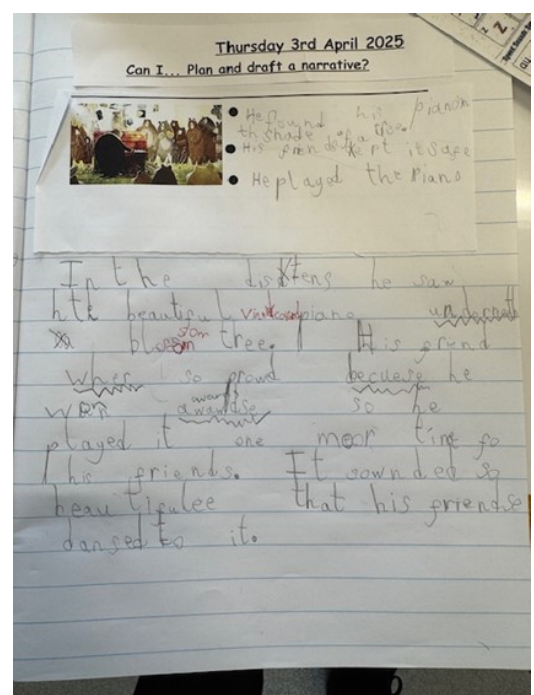 Thursday 3rd April 2025
Can I... Plan and draft a narrative?
He found his pianon
th shade of a tree.
His frendse kept it safe
He played the Piano
In the distens he saw
hth beautiful piano underneth
blossom tree. His friend
wher so prowd becuese he
wen awardse so he
played it one moor time fo
his friends. It sownded so
beautifulee that his friendse
dansed to it.